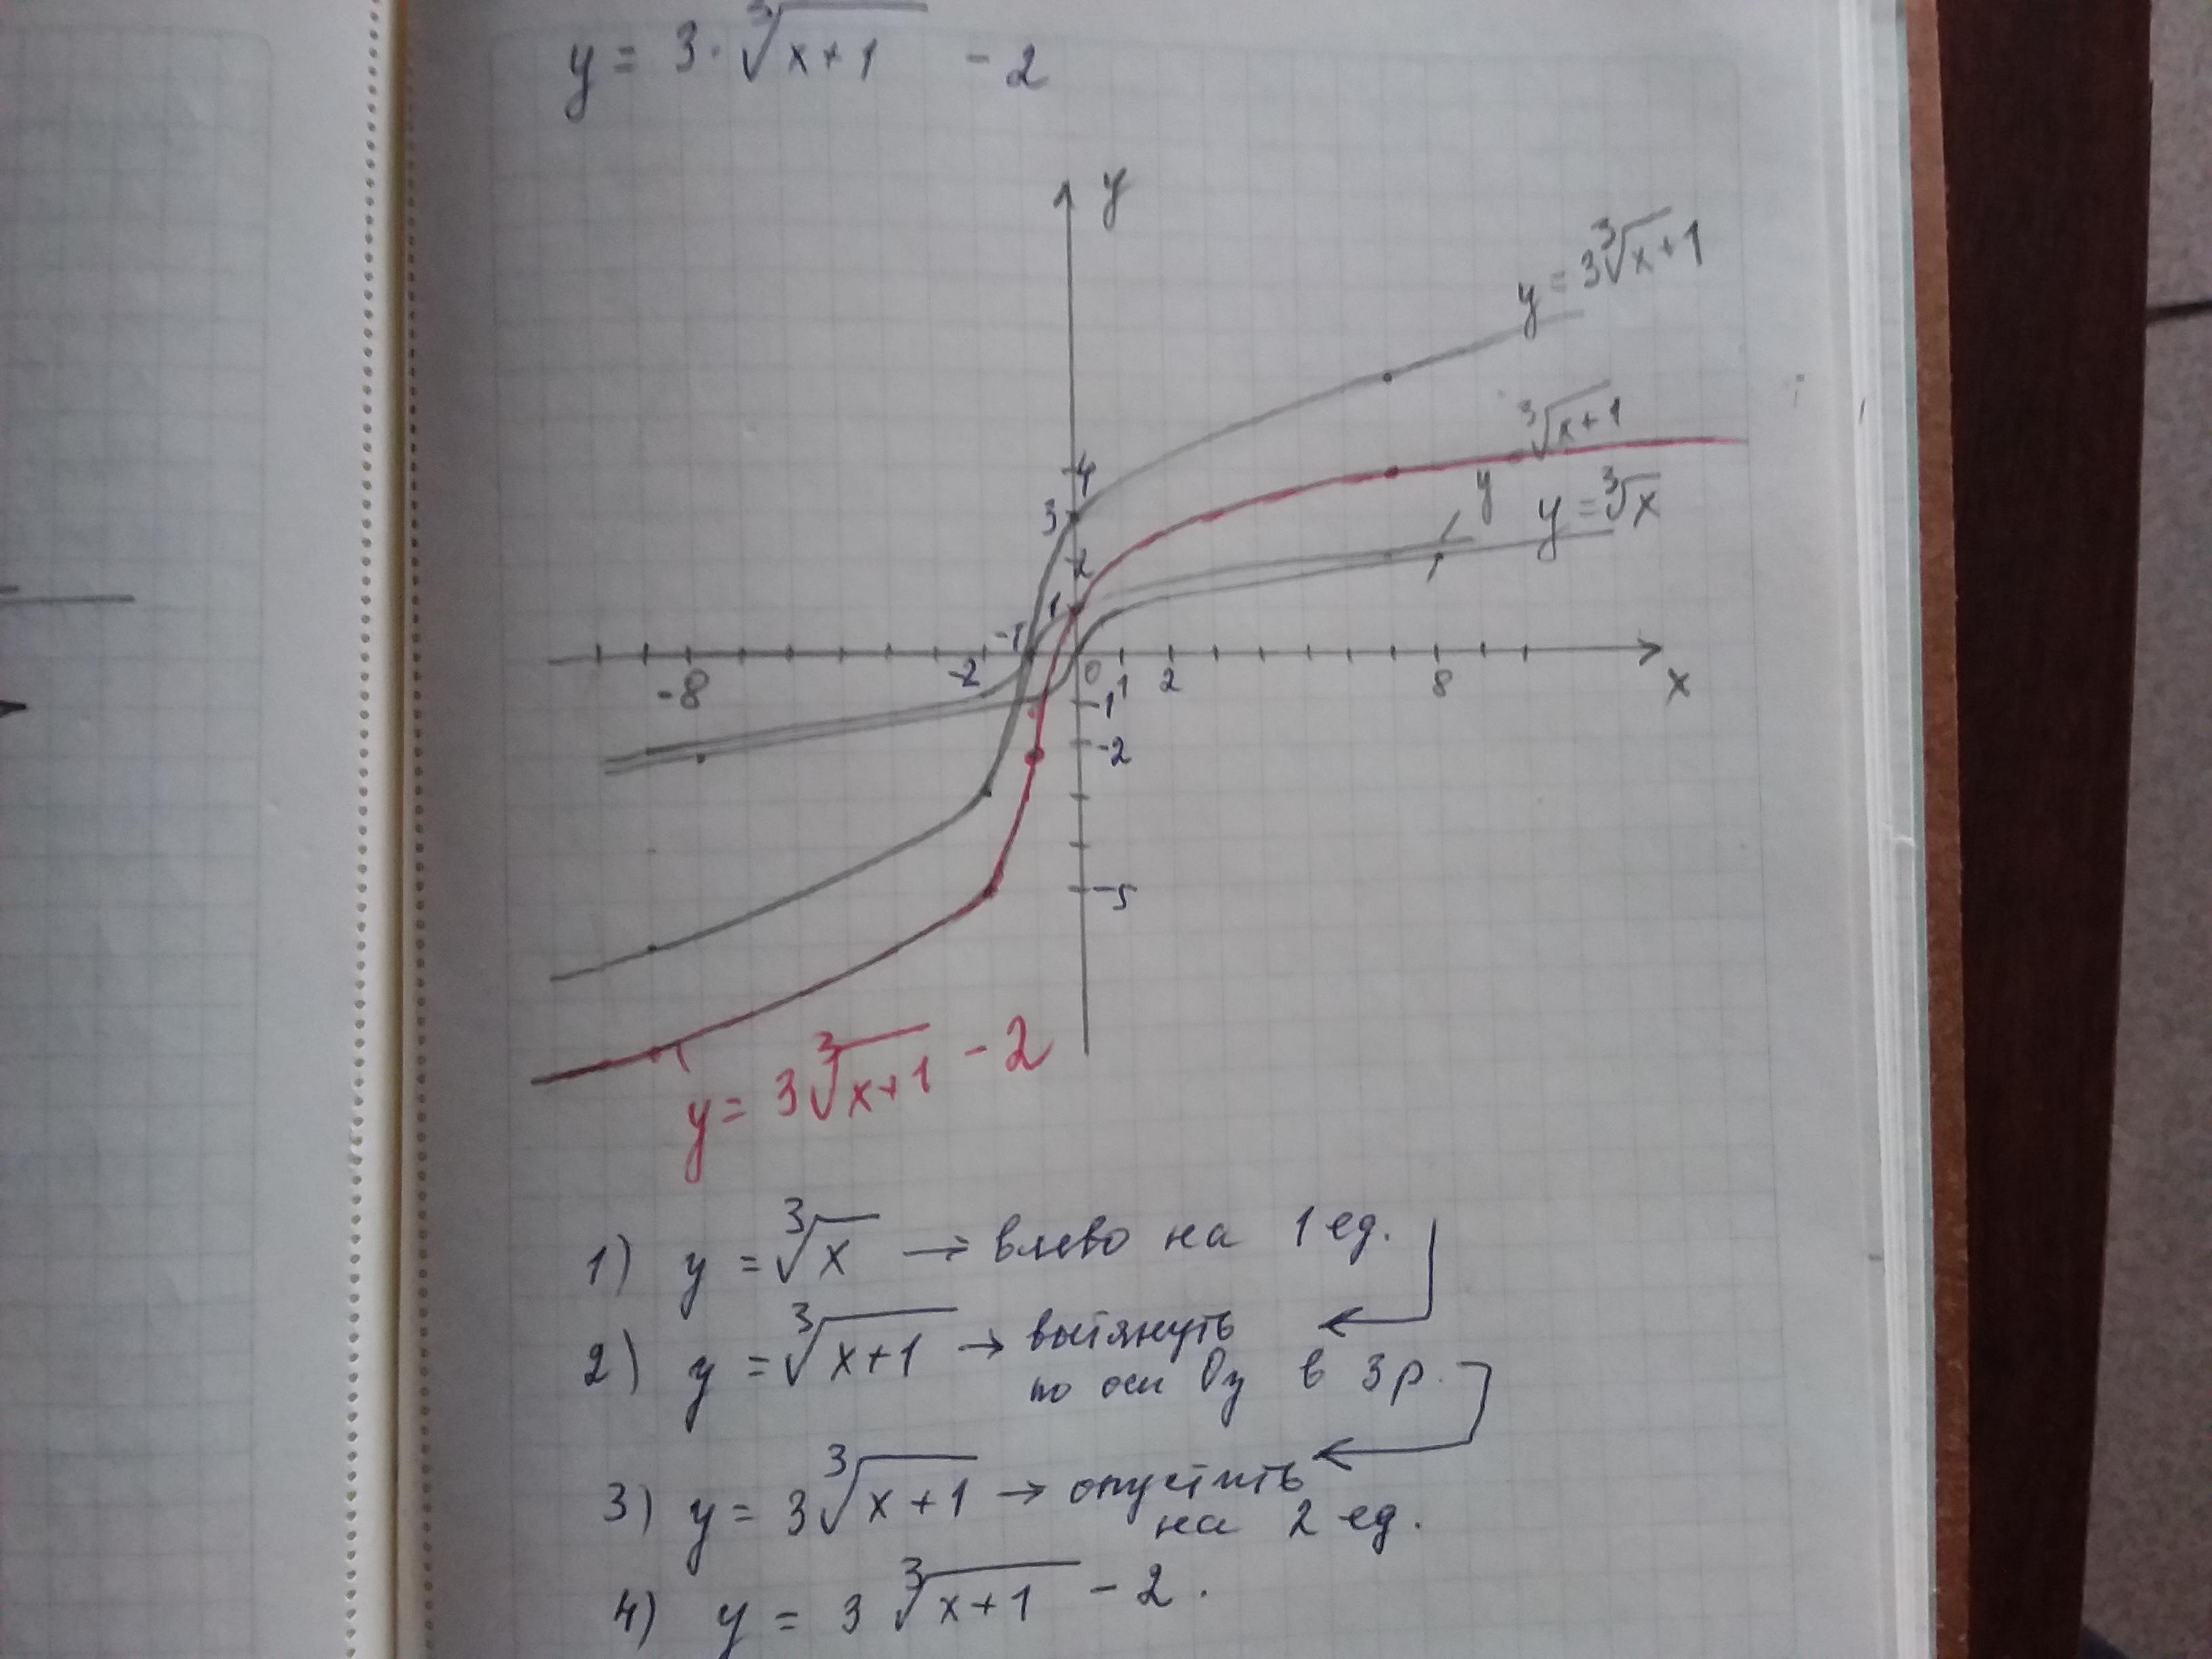 y = 3·∛x+1 - 2
y
y = 3∛x+1
∛x+1
4
y
y = ∛x
3
2
1
-1
-8
-2
0
1
2
8
x
-1
-2
-5
y = 3∛x+1 - 2
1) y = ∛x → влево на 1 ед.
2) y = ∛x+1 → вытянуть
по оси Oy в 3 р.
3) y = 3∛x+1 → опустить
на 2 ед.
4) y = 3∛x+1 - 2.